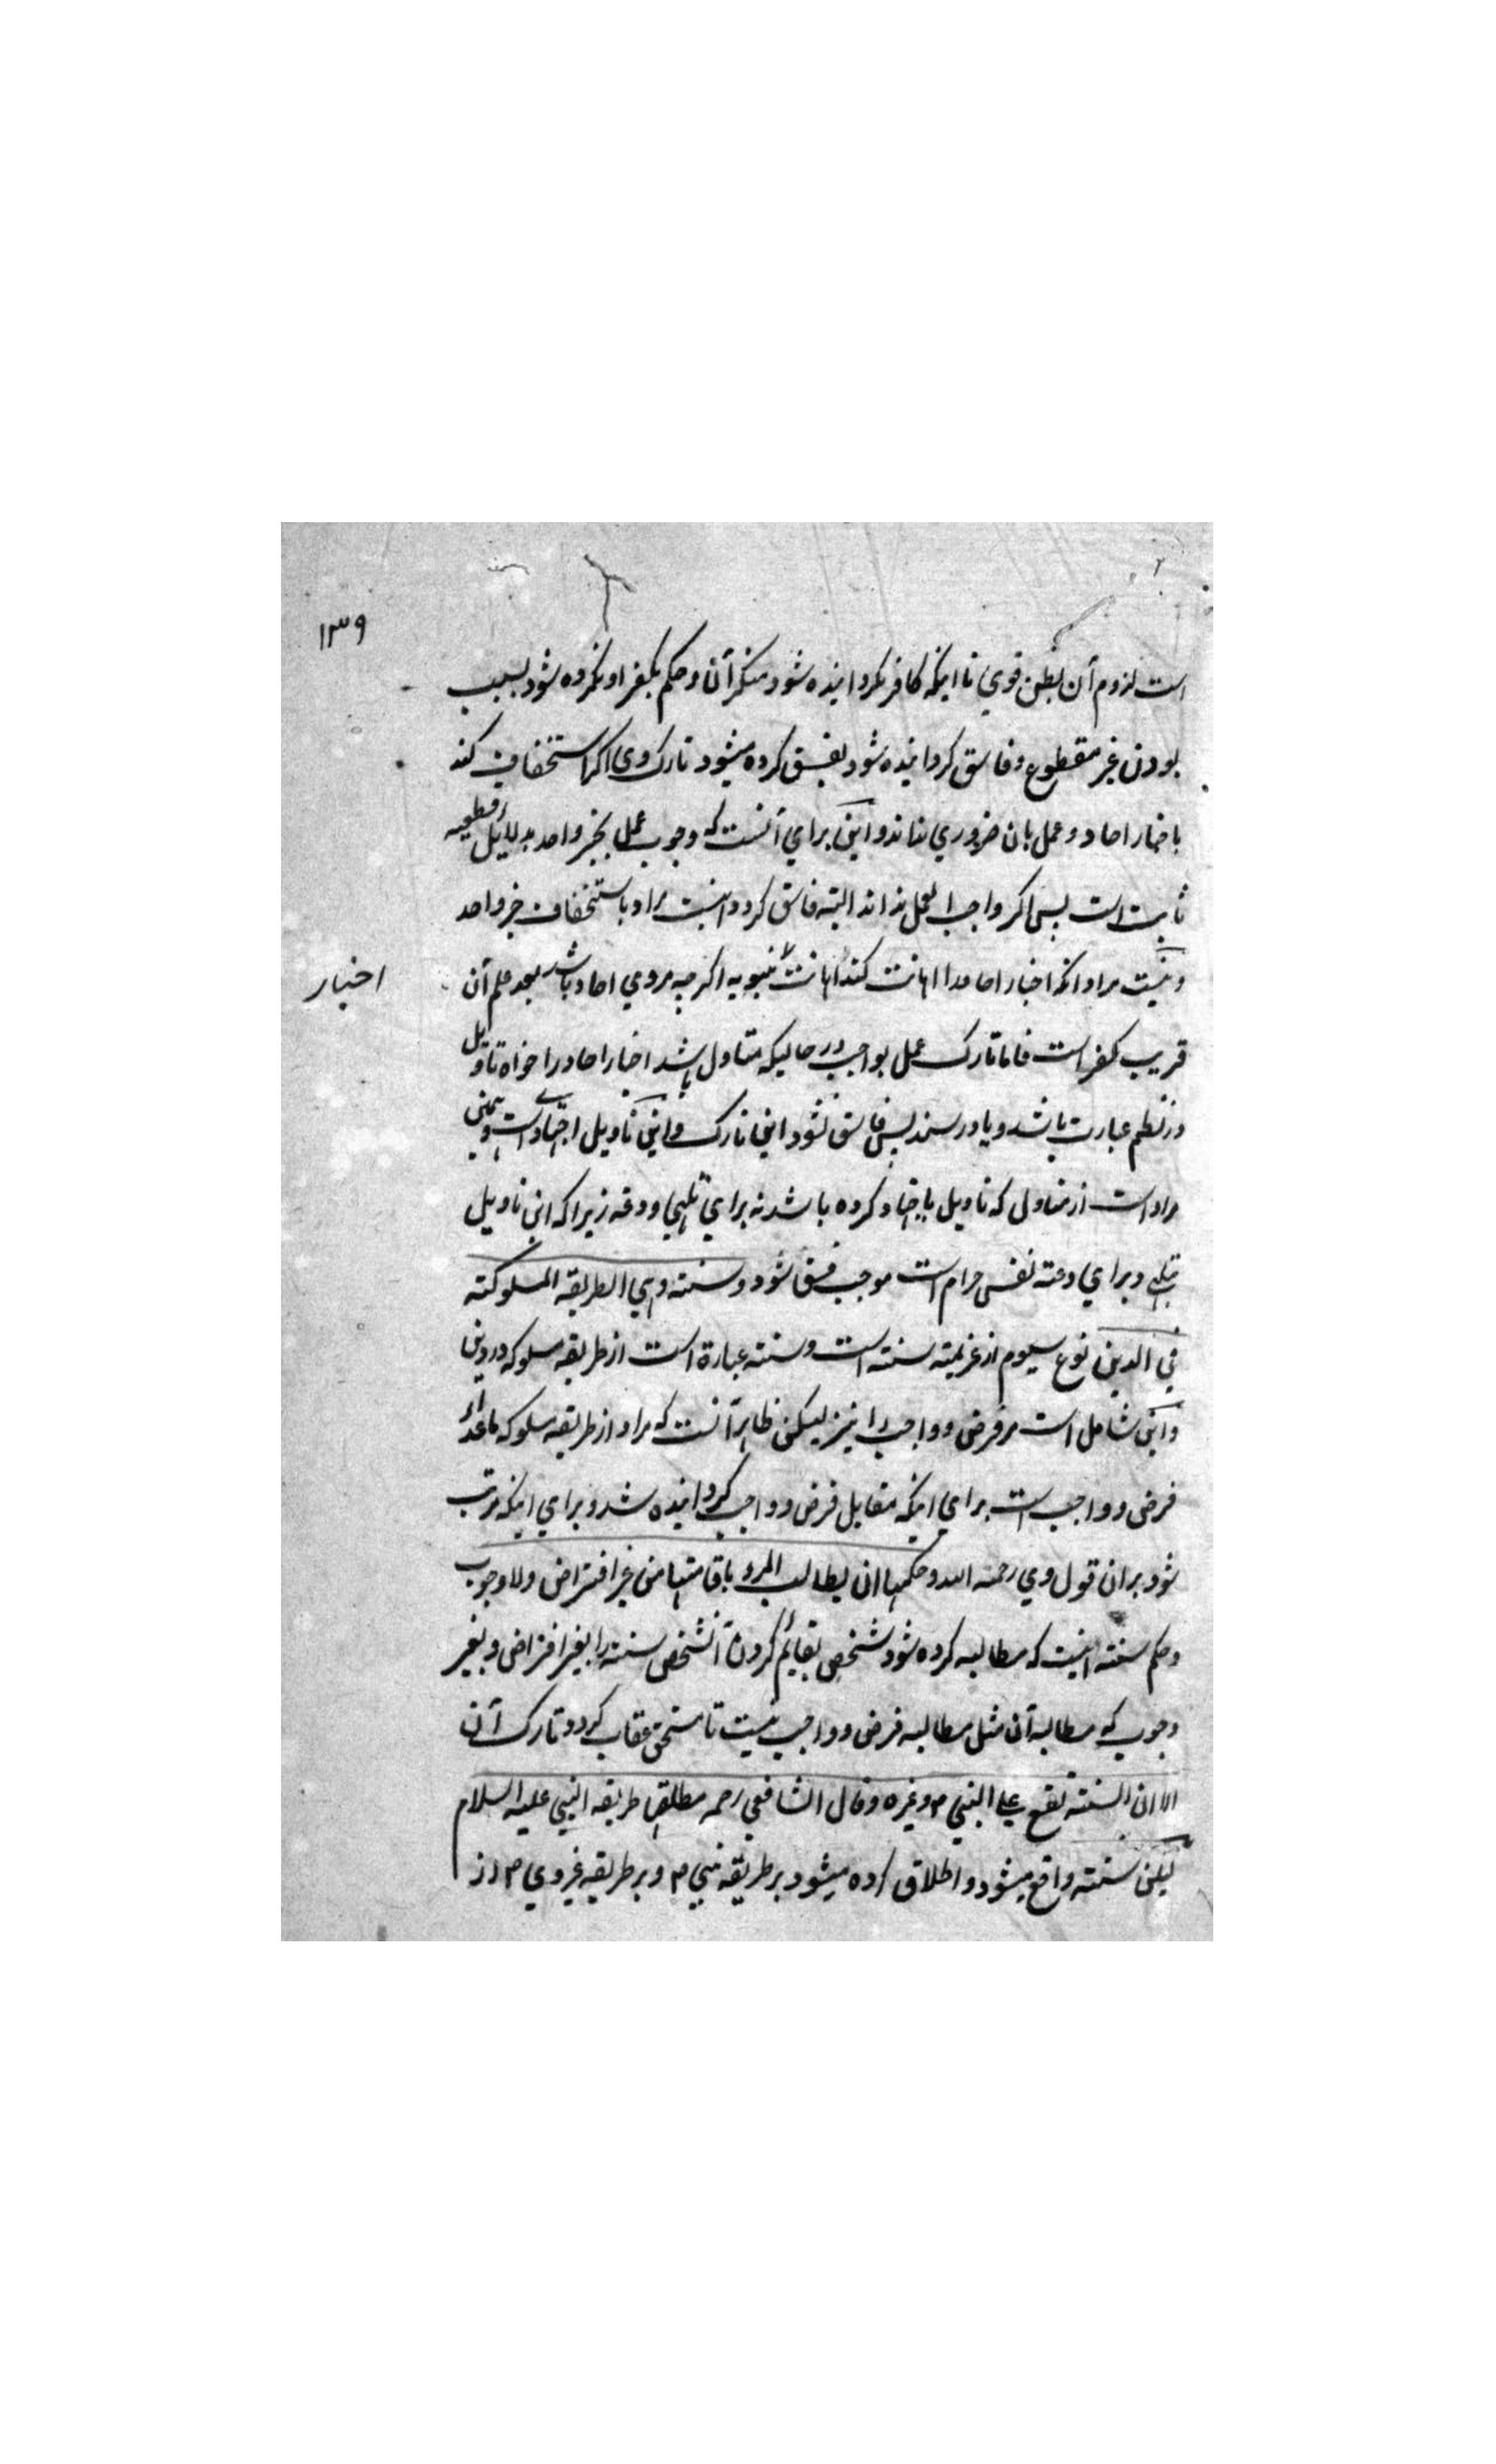 ۱۳۹
است لزوم آن بظن قوي تا اینکه کافر نکردانیده شود منکر آن و حکم بکفر او نکرده شود بسبب
بودن غیر مقطوع و فاسق کردانیده شود بفسق کرده میشود تارک وی اکر استخفاف کند
باخبار احاد و عمل بان ضروري نداند و این براي آنست که وجوب عمل بخبر واحد بدلایل قطعیه
ثابت است پس اکر واجب العمل نداند البته فاسق کردد اینست مراد باستخفاف خبر واحد
و نیست مراد انکه اخبار احاد را اهانت کند اهانت نبویه اکرچه مروي احاد باشد بعد علم آن
اخبار
قریب کفر است فاما تارک عمل بواجب در حالیکه متاول باشد اخبار احاد را خواه تاویل
در نظم عبارت باشد و یا در سند پس فاسق نشود این تارک و این تاویل اجتهادیست و همین
مراد است از متاولی که تاویل باجتهاد کرده باشد نه براي تلهي و دعه زیراکه این تاویل
بتلهي و براي دعته نفس حرام است موجب فسق شود و سنته وهي الطریقه المسلوکته
في الدین نوع سیوم از عزیمته سنته است و سنته عبارة است از طریقه مسلوکه در دین
و این شامل است مر فرض و واجب را نیز لیکن ظاهر آنست که مراد از طریقه مسلوکه ماعداء
فرض و واجب است براي اینکه مقابل فرض و واجب کردانیده شد و براي اینکه مرتب
شود بران قول وي رحمه الله وحکمها ان یطالب المرء باقامتها من غیر افتراض ولا وجوب
و حکم سنته اینست که مطالبه کرده شود شخصی بقایم کردن آنشخص سنته را بغیر افتراض و بغیر
وجوب که مطالبه آن مثل مطالبه فرض و واجب نیست تا مستحق عقاب کردد تارک آن
الا ان السنته تقع علي النبي م وغیره وقال الشافعي رحمه مطلقها طریقه النبي علیه السلام
لیکن سنته واقع میشود و اطلاق کرده میشود بر طریقه نبي م و بر طریقه غیر وي م از